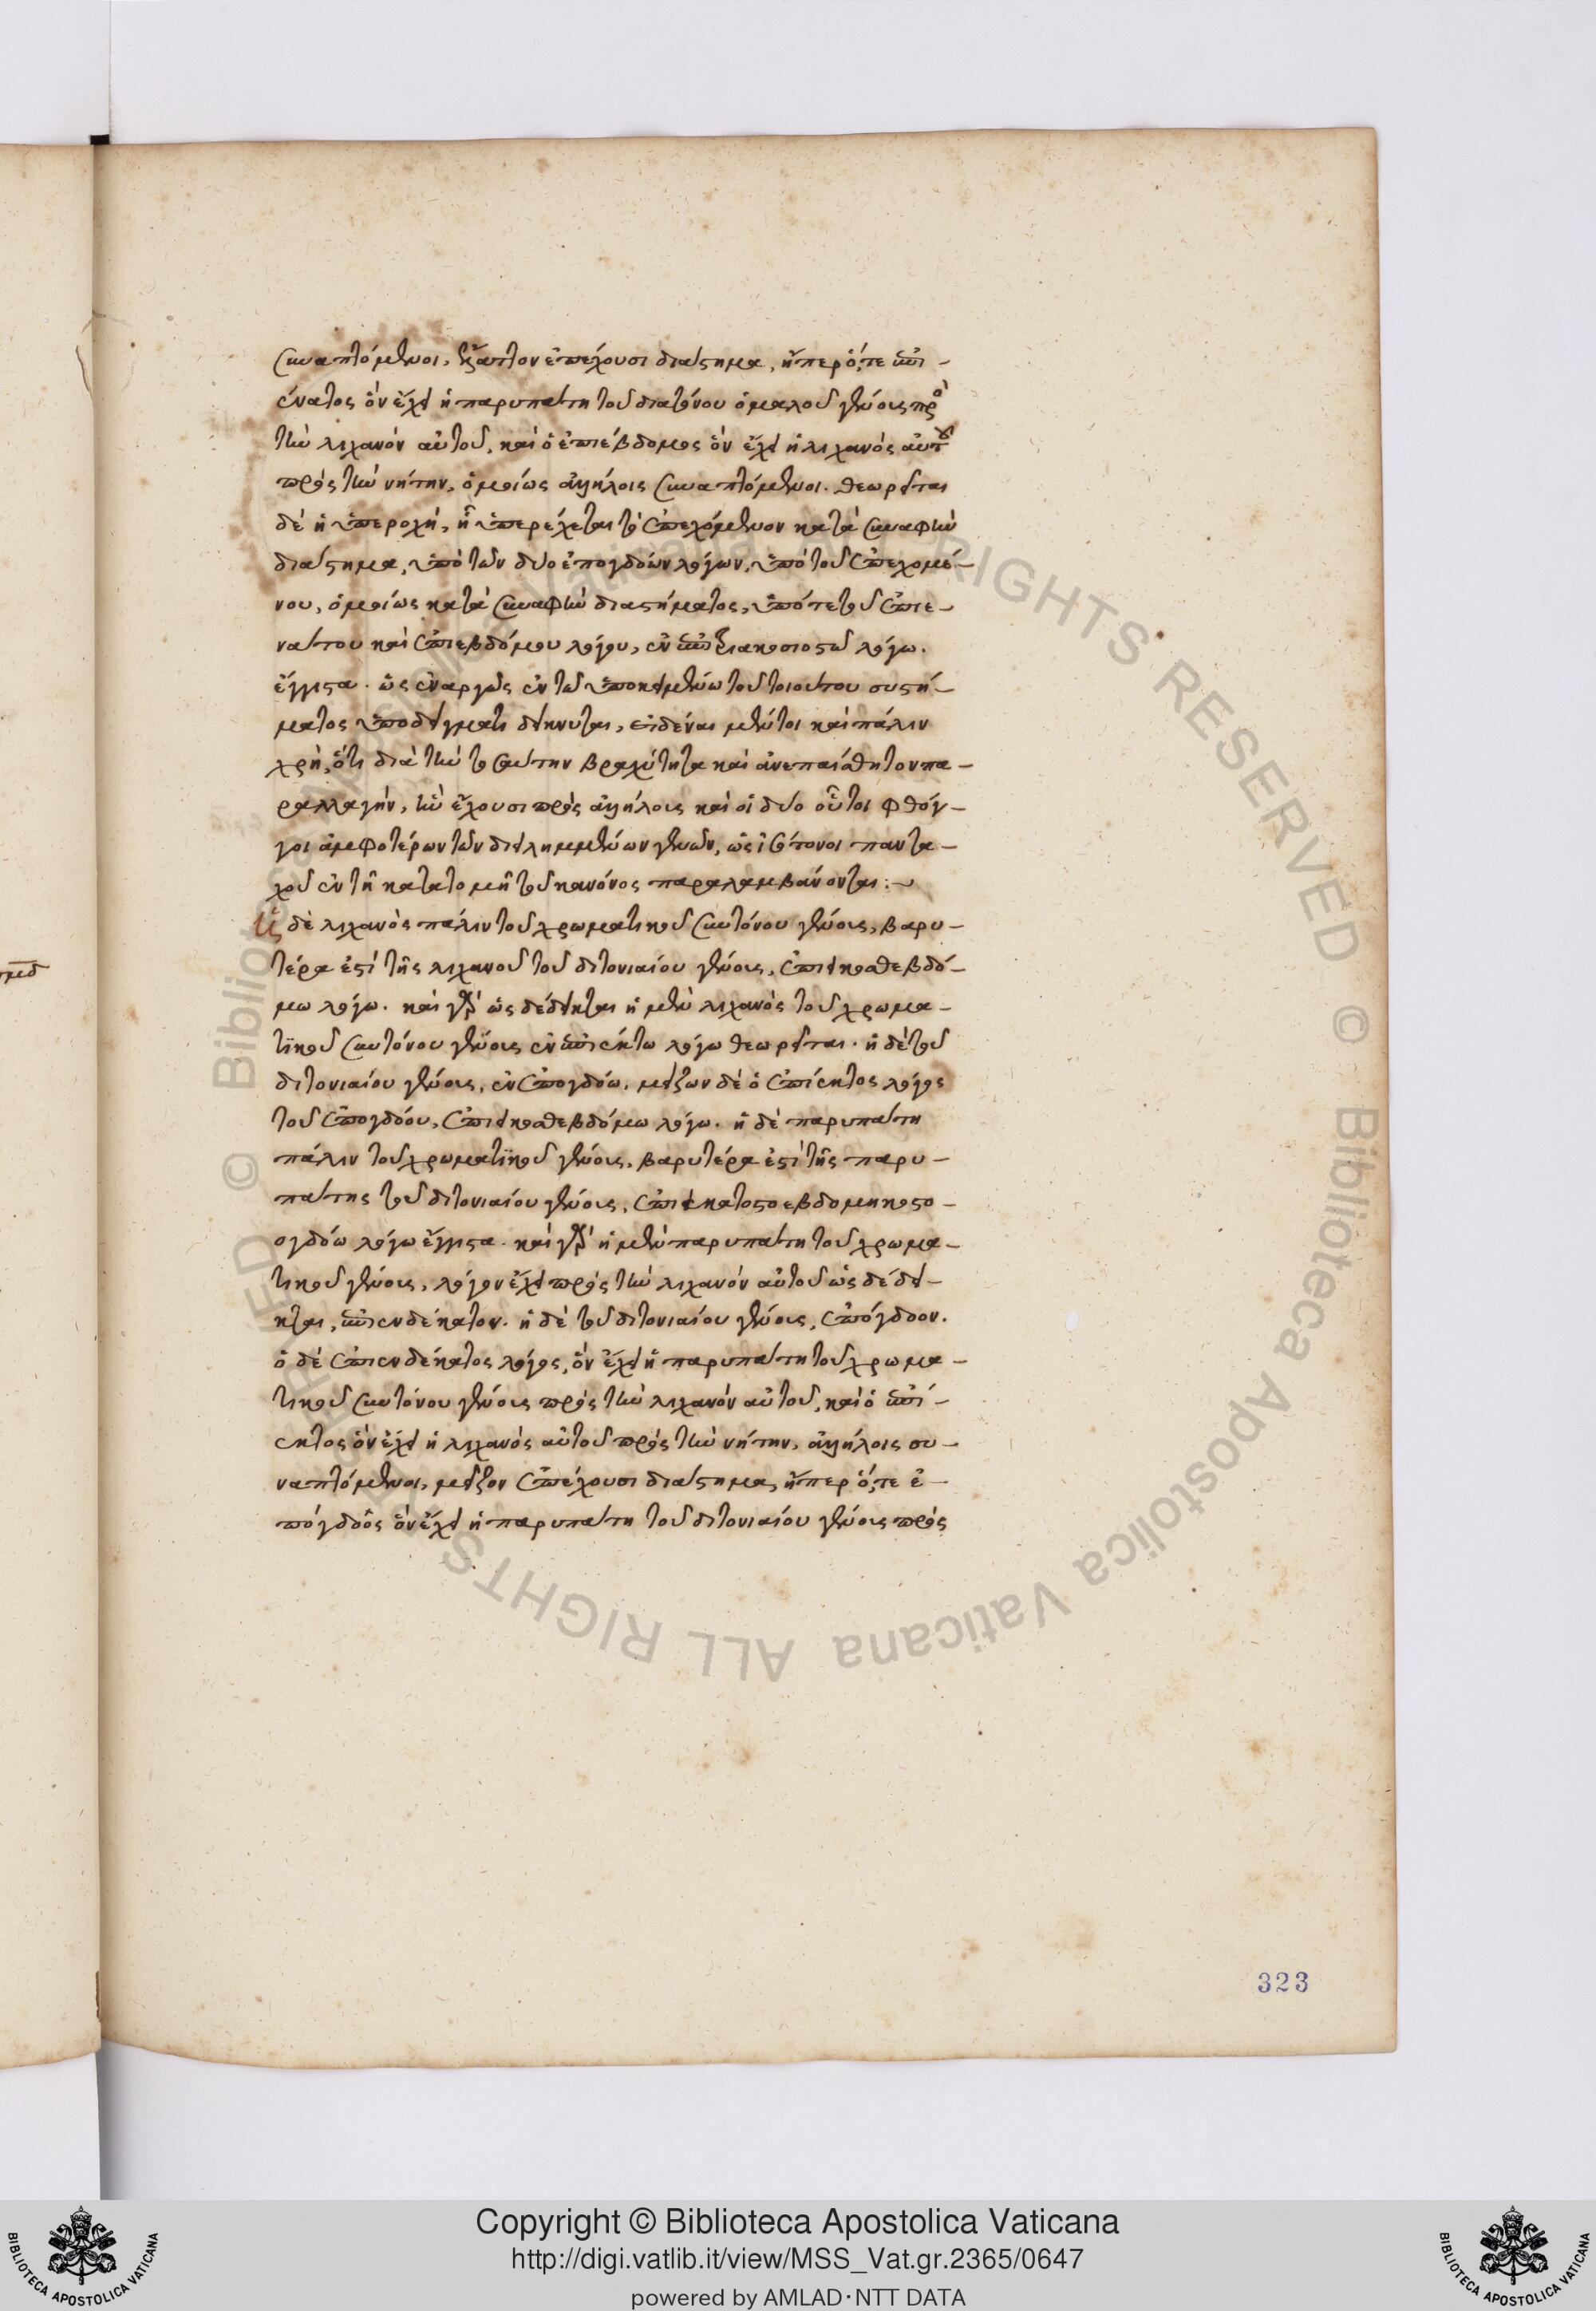 συναπτόμενοι, ἔλαττον ἐπέχουσι διάστημα, ἤπερ ὅ, τε ἐπι-
ένατος ὃν ἔχει ἡ παρυπάτη τοῦ διατόνου ὁμαλοῦ γένους πρὸ
τὴν λιχανὸν αὐτοῦ, καὶ ὁ ἐπιέβδομος ὃν ἔχει ἡ λιχανὸς αὐτοῦ
πρὸς τὴν νήτην, ὁμοίως ἀλλήλοις συναπτόμενοι. θεωρεῖται
δὲ ἡ ὑπεροχὴ, ᾗ ὑπερέχεται τὸ ἐπεχόμενον κατὰ συναφὴν
διάστημα, ὑπὸ τῶν δύο ἐπογδόων λόγων, ὑπὸ τοῦ ἐπεχομέ-
νου, ὁμοίως κατὰ συναφὴν διαστήματος, ὑπό τε τοῦ ἐπιε-
νάτου καὶ ἐπιεβδόμου λόγου, ἐν ἐπιτριακοσιοστῷ λόγω.
ἔγγιστα. ὡς ἐναργῶς ἐν τῶ ὑποκειμένω τοῦ τοιούτου συστή-
ματος ὑποδείγματι δείκνυται, εἰδέναι μέντοι καὶ πάλιν
χρὴ, ὅτι διὰ τὴν τοσαύτην βραχύτητα καὶ ἀνεπαίσθητον πα-
ραλλαγὴν, ἣν ἔχουσι πρὸς ἀλλήλους καὶ οἱ δύο οὗτοι φθόγ-
γοι ἀμφοτέρων τῶν διειλημμένων γενῶν, ὡς ἰσότονοι παντα-
χοῦ ἐν τῆ κατατομῆ τοῦ κανόνος παραλαμβάνονται:
Ἡ δὲ λιχανὸς πάλιν τοῦ χρωματικοῦ συντόνου γένους, βαρυ-
τέρα ἐστὶ τῆς λιχανοῦ τοῦ διτονιαίου γένους, ἐπιεικοσθεβδό-
μω λόγω. καὶ γὰρ ὡς δέδεικται ἡ μὲν λιχανὸς τοῦ χρωμα-
τικοῦ συντόνου γένους ἐν ἐπιέκτω λόγω θεωρεῖται. ἡ δὲ τοῦ
διτονιαίου γένους, ἐν ἐπογδόω. μείζων δὲ ὁ ἐπίεκτος λόγος
τοῦ ἐπογδόου, ἐπιεικοσθεβδόμω λόγω. ἡ δὲ παρυπάτη
πάλιν τοῦ χρωματικοῦ γένους, βαρυτέρα ἐστὶ τῆς παρυ-
πάτης τοῦ διτονιαίου γένους, ἐπιεκατοστοεβδομηκοστο-
ογδόω λόγω ἔγγιστα. καὶ γὰρ ἡ μὲν παρυπάτη τοῦ χρωμα-
τικοῦ γένους, λόγον ἔχει πρὸς τὴν λιχανὸν αὐτοῦ ὡς δέδει-
κται, ἐπιενδέκατον. ἡ δὲ τοῦ διτονιαίου γένους, ἐπόγδοον.
ὁ δὲ ἐπιενδέκατος λόγος, ὃν ἔχει ἡ παρυπάτη τοῦ χρωμα-
τικοῦ συντόνου γένους πρὸς τὴν λιχανὸν αὐτοῦ, καὶ ὁ ἐπί-
εκτος ὃν ἔχει ἡ λιχανὸς αὐτοῦ πρὸς τὴν νήτην, ἀλλήλοις συ-
ναπτόμενοι, μεῖζον ἐπέχουσι διάστημα, ἤπερ ὅ, τε ἐ-
πόγδοος ὃν ἔχει ἡ παρυπάτη τοῦ διτονιαίου γένους πρὸς
323
Copyright © Biblioteca Apostolica Vaticana
http://digi.vatlib.it/view/MSS_Vat.gr.2365/0647
powered by AMLAD·NTT DATA
BIBLIOTECA APOSTOLICA VATICANA
BIBLIOTECA APOSTOLICA VATICANA
© Biblioteca Apostolica Vaticana ALL RIGHTS RESERVED
© Biblioteca Apostolica Vaticana ALL RIGHTS RESERVED